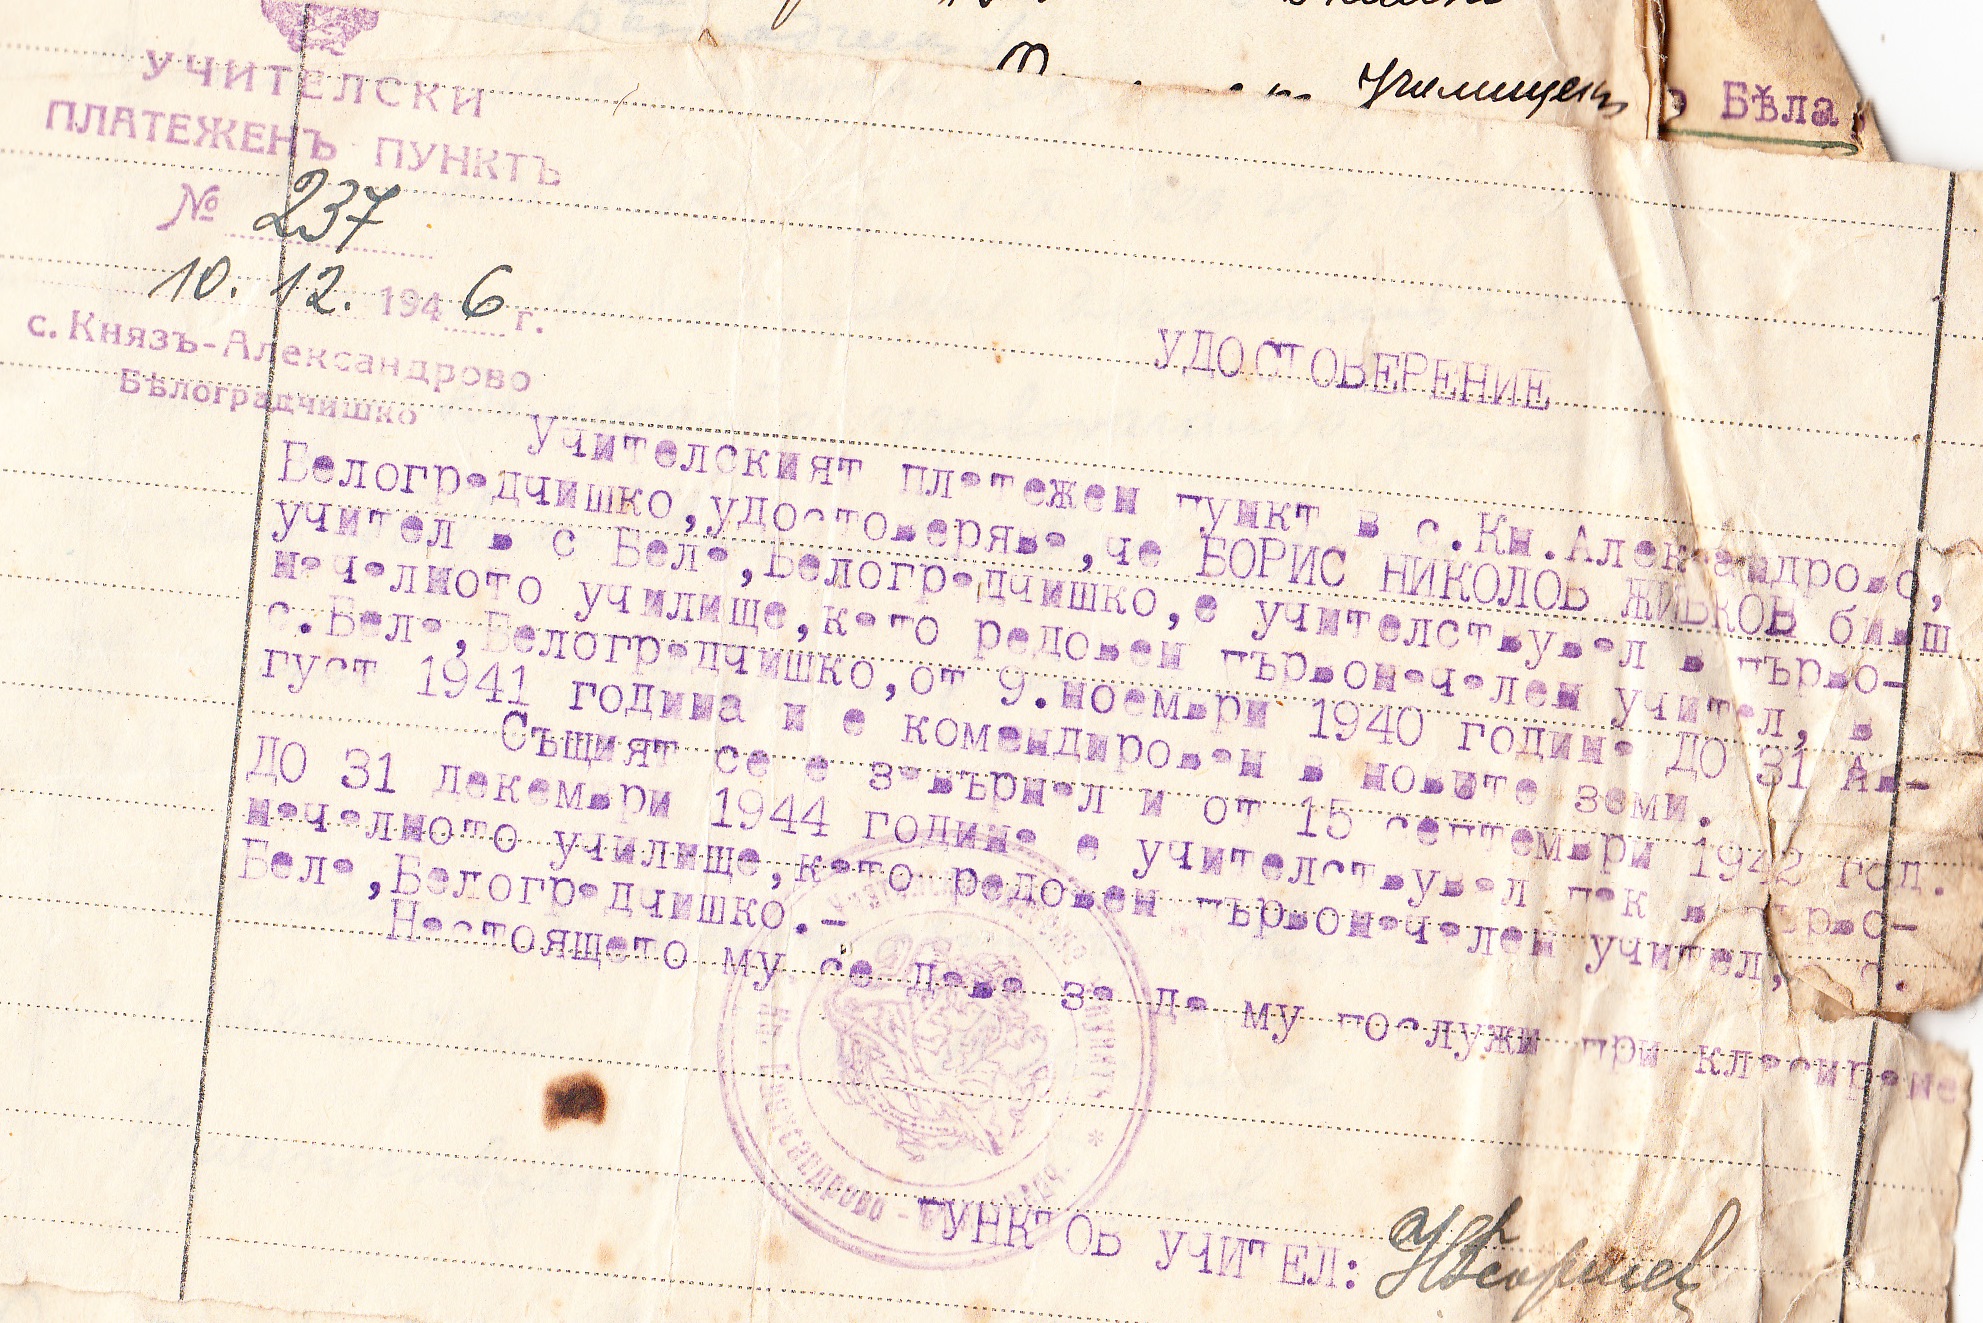 Училищен
Бѣла
УЧИТЕЛСКИ
ПЛАТЕЖЕНЪ ПУНКТЪ
№ 237
10. 12. 1946 г.
с. Князъ-Александрово
Бѣлоградчишко
УДОСТОВЕРЕНИЕ
Учителският платежен пункт в с.Кн.Александрово,
Белоградчишко,удостоверява,че БОРИС НИКОЛОВ ЖИВКОВ бивш
учител в с Бела,Белоградчишко,е учителствувал в първо-
началното училище,като редовен първоначален учител, в
с.Бела,Белоградчишко,от 9.ноември 1940 година ДО 31 Ав-
густ 1941 година и е командирован в новите земи.
Същият се е завърнал и от 15 септември 1942 год.
ДО 31 декември 1944 година е учителствувал пак в първо-
началното училище,като редовен първоначален учител, с.
Бела,Белоградчишко.-
Настоящето му се дава за да му послужи при класиране
ПУНКТОВ УЧИТЕЛ: